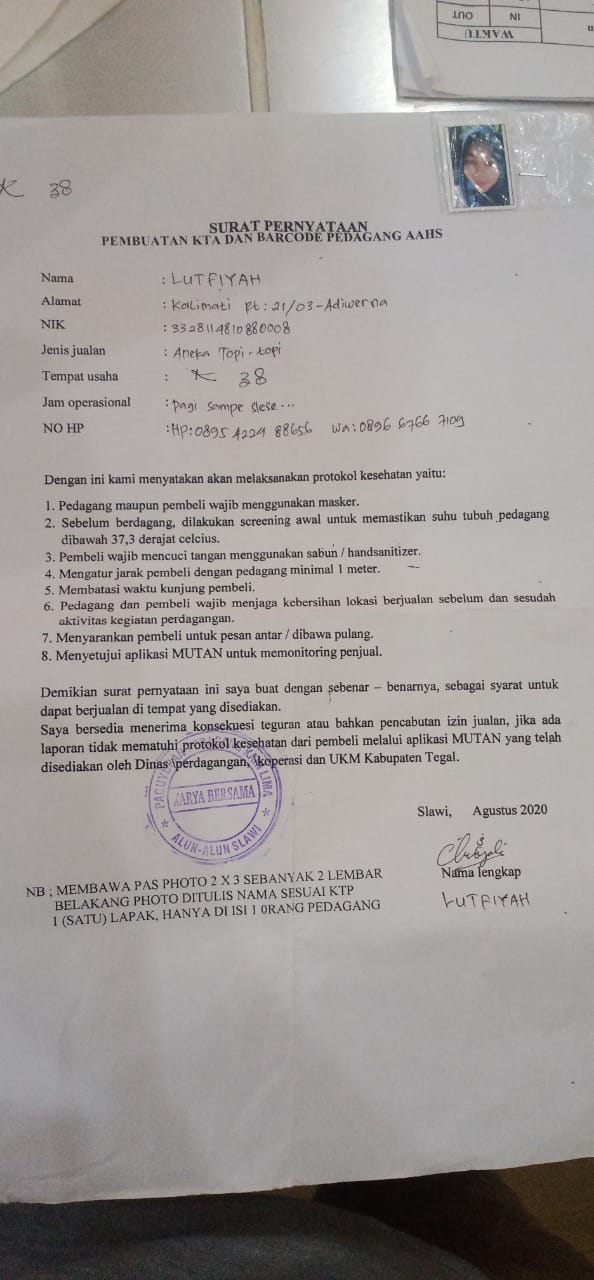 OUT IN
WAKTU
K 38
SURAT PERNYATAAN
PEMBUATAN KTA DAN BARCODE PEDAGANG AAHS
Nama : LUTFIYAH
Alamat : Kalimati Rt : 21/03 - Adiwerna
NIK : 3328114810880008
Jenis jualan : Aneka Topi - topi
Tempat usaha : K 38
Jam operasional : pagi sampe slese...
NO HP : HP: 0895 4224 88656 wa: 0896 6766 7109
Dengan ini kami menyatakan akan melaksanakan protokol kesehatan yaitu:
1. Pedagang maupun pembeli wajib menggunakan masker.
2. Sebelum berdagang, dilakukan screening awal untuk memastikan suhu tubuh pedagang
dibawah 37,3 derajat celcius.
3. Pembeli wajib mencuci tangan menggunakan sabun / handsanitizer.
4. Mengatur jarak pembeli dengan pedagang minimal 1 meter.
5. Membatasi waktu kunjung pembeli.
6. Pedagang dan pembeli wajib menjaga kebersihan lokasi berjualan sebelum dan sesudah
aktivitas kegiatan perdagangan.
7. Menyarankan pembeli untuk pesan antar / dibawa pulang.
8. Menyetujui aplikasi MUTAN untuk memonitoring penjual.
Demikian surat pernyataan ini saya buat dengan sebenar – benarnya, sebagai syarat untuk
dapat berjualan di tempat yang disediakan.
Saya bersedia menerima konsekuesi teguran atau bahkan pencabutan izin jualan, jika ada
laporan tidak mematuhi protokol kesehatan dari pembeli melalui aplikasi MUTAN yang telah
disediakan oleh Dinas perdagangan, koperasi dan UKM Kabupaten Tegal.
KARYA BERSAMA
* ALUN-ALUN SLAWI *
Slawi, Agustus 2020
Nama lengkap
LUTFIYAH
NB ; MEMBAWA PAS PHOTO 2 X 3 SEBANYAK 2 LEMBAR
BELAKANG PHOTO DITULIS NAMA SESUAI KTP
1 (SATU) LAPAK, HANYA DI ISI 1 0RANG PEDAGANG